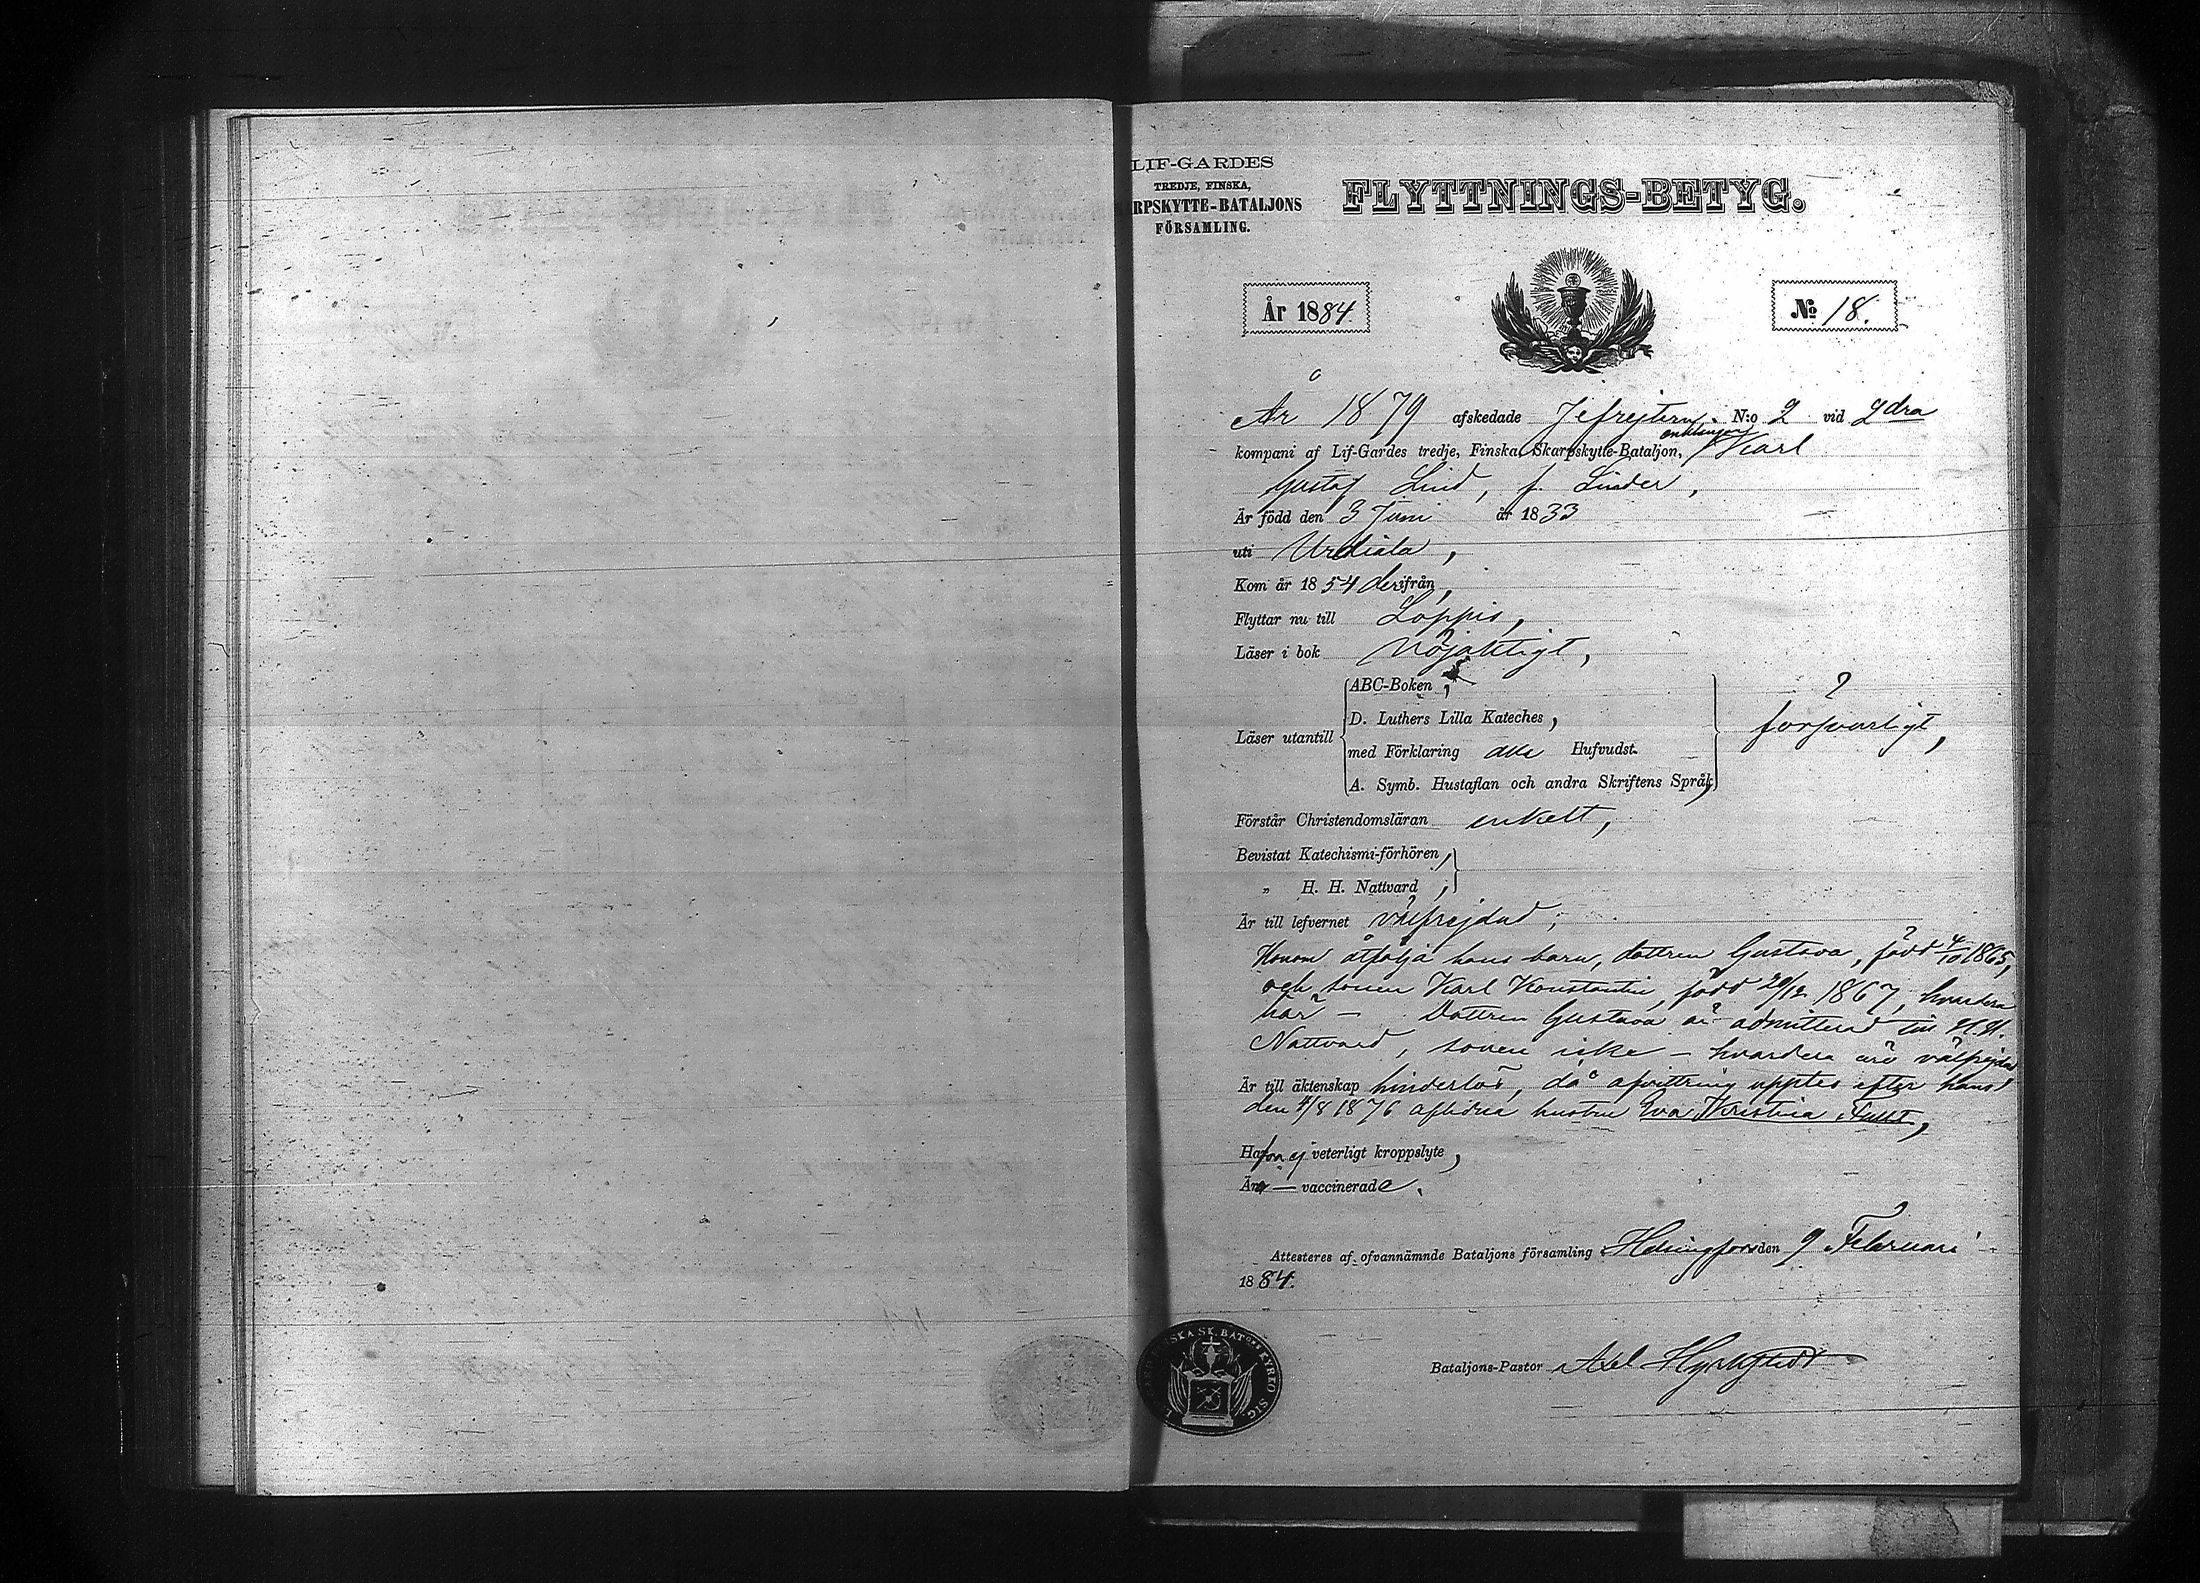 LIF-GARDES
TREDJE, FINSKA,
RPSKYTTE-BATALJONS
FÖRSAMLING.
FLYTTNINGS-BETYG.
År 1884
No 18.
År 1879 afskedade Jefrejtern N:o 2 vid 2dra
kompani af Lif-Gardes tredje, Finska Skarpskytte-Bataljon, enklingen Karl
Gustaf Lind, f. Linder,
Är född den 3 Juni år 1833
uti Urdiala,
Kom år 1854 derifrån,
Flyttar nu till Loppis,
Läser i bok Nöjaktigt,
Läser utantill
ABC-Boken,
D. Luthers Lilla Kateches,
med Förklaring alla Hufvudst.
A. Symb. Hustaflan och andra Skriftens Språk,
försvarligt,
Förstår Christendomsläran enkelt,
Bevistat Katechismi-förhören,
„ H. H. Nattvard,
Är till lefvernet välfrejdad;
Honom åtfölja hans barn, dottren Gustava, född 4/10 1865,
och sonen Karl Konstantin, född 29/12 1867, hvardera
här – Dottren Gustava är admitterad till H.H.
Nattvard, sonen icke – hvardera äro välfrejdad
Är till äktenskap hinderlös, då afvittring upptes efter hans
den 4/8 1876 aflidna hustru Eva Kristina
Hafva ej veterligt kroppslyte,
Äro — vaccinerade.
Attesteres af ofvannämnde Bataljons församling Helsingfors den 9 Februari
1884.
SKA SK. BATONS KYRKO SIG.
Bataljons-Pastor Axel Hyrkstedt